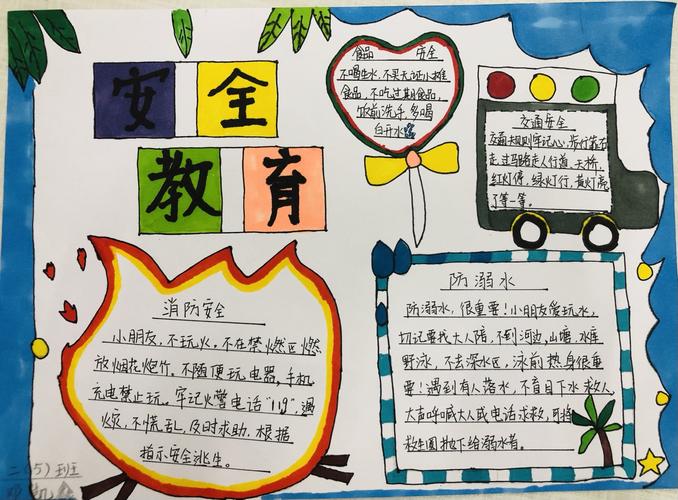 安全
教育
食品 安全
不喝生水,不买无证小摊
食品,不吃过期食品,
饭前洗手,多喝
白开水
交通安全
交通规则牢记心,步行靠右
走,过马路走人行道,天桥,
红灯停,绿灯行,黄灯亮
了等一等。
消防安全
小朋友,不玩火。不在禁燃区燃
放烟花炮竹。不随便玩电器,手机
充电禁止玩。牢记火警电话“119”,遇
火灾,不慌乱,及时求助,根据
指示安全逃生。
防溺水
防溺水,很重要!小朋友爱玩水,
切记要找大人陪,不到河边,山塘,水库
野泳,不去深水区;泳前热身很重
要!遇到有人落水,不盲目下水救人,
大声呼喊大人或电话求救,可将
救生圆抛下给溺水者。
二(5)班